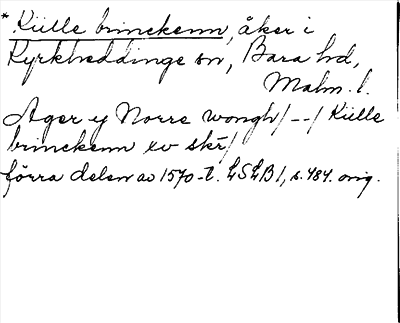 * Kiille brinckenn, åker i
Kyrkheddinge sn, Bara hd,
Malm. l.
Ager y Norre wongh/--/ Kiille
brinckenn xv skr/
förra delen av 1570-t. LSLB 1, s. 484. orig.